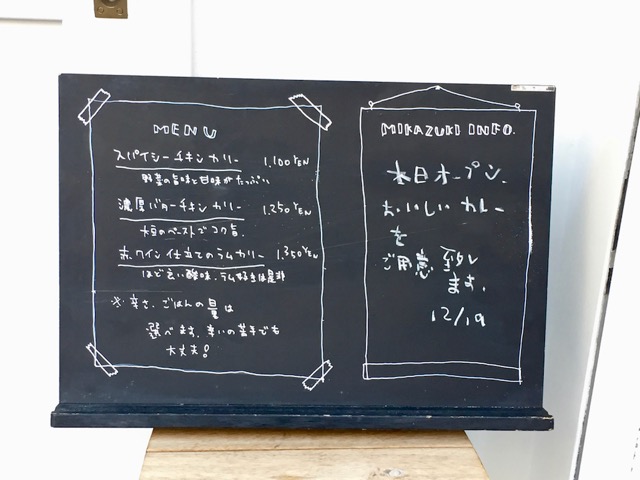 MENU
スパイシーチキンカリー 1.100 YEN
野菜の旨味と甘味がたっぷり
濃厚バターチキンカリー 1.250 YEN
大豆のペーストでコク旨。
赤ワイン仕立てのラムカリー 1.350 YEN
ほど良い酸味。ラム好きは是非
※辛さ、ごはんの量は
選べます。辛いの苦手でも
大丈夫!
MIKAZUKI INFO.
本日オープン。
おいしいカレー
を
ご用意致し
ます。
12/19